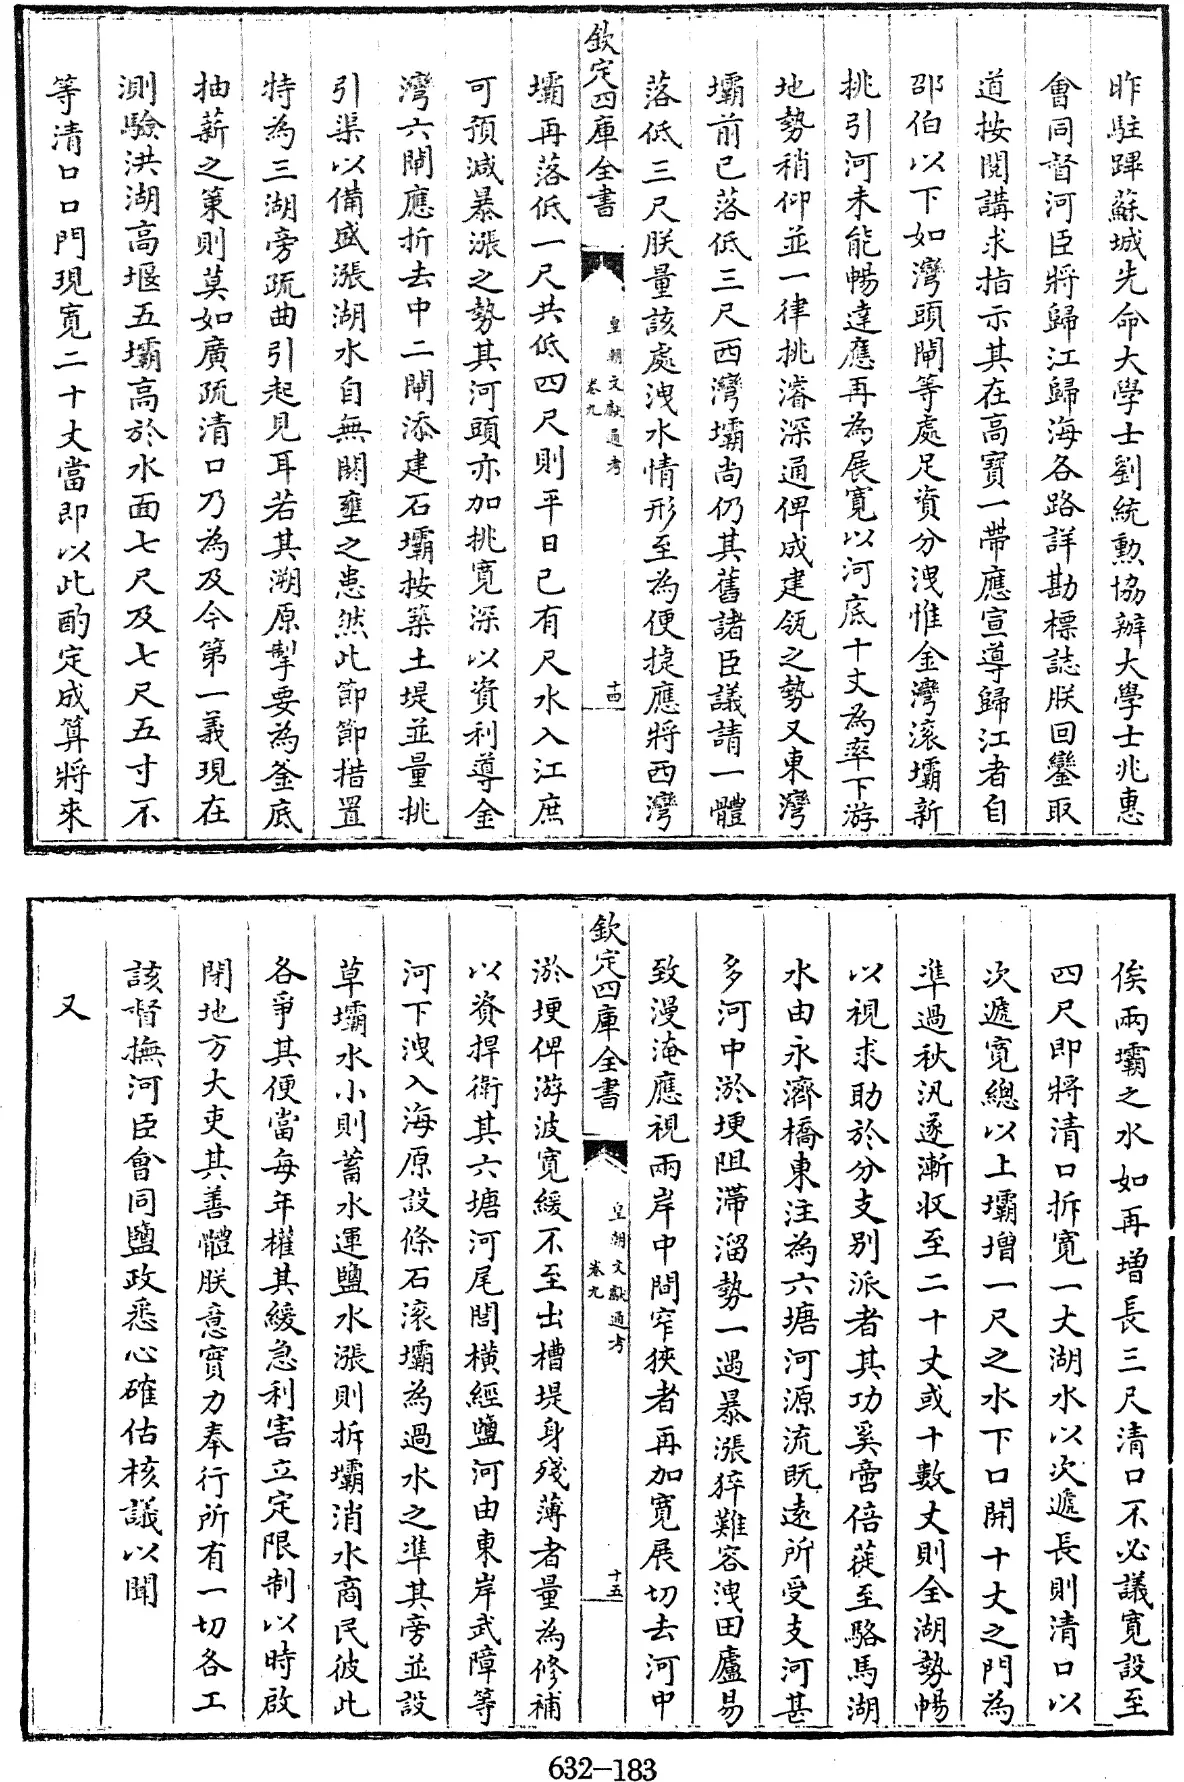 昨駐蹕蘇城先命大學士劉統勲協辦大學士兆惠
會同督河臣將歸江歸海各路詳勘標誌朕回鑾取
道按閱講求指示其在高寶一帶應宣導歸江者自
邵伯以下如灣頭閘等處足資分洩惟金灣滚壩新
挑引河未能暢達應再為展寛以河底十丈為率下游
地勢稍仰並一律挑濬深通俾成建瓴之勢又東灣
壩前已落低三尺西灣壩尚仍其舊諸臣議請一體
落低三尺朕量該處洩水情形至為便捷應將西灣
欽定四庫全書
皇朝文獻通考
卷九
十四
壩再落低一尺共低四尺則平日已有尺水入江庶
可預減暴漲之勢其河頭亦加挑寛深以資利導金
灣六閘應折去中二閘添建石壩按築土堤並量挑
引渠以備盛漲湖水自無闗壅之患然此節節措置
特為三湖旁疏曲引起見耳若其溯原挈要為釜底
抽薪之策則莫如廣疏清口乃為及今第一義現在
測驗洪湖高堰五壩高於水面七尺及七尺五寸不
等清口口門現寛二十丈當即以此酌定成算將來
俟兩壩之水如再增長三尺清口不必議寛設至
四尺即將清口拆寛一丈湖水以次遞長則清口以
次遞寛總以上壩增一尺之水下口開十丈之門為
準過秋汛逐漸收至二十丈或十數丈則全湖勢暢
以視求助於分支别派者其功奚啻倍蓰至駱馬湖
水由永濟橋東注為六塘河源流既遠所受支河甚
多河中淤埂阻滯溜勢一遇暴漲猝難容洩田廬易
致漫淹應視兩岸中間窄狹者再加寛展切去河中
欽定四庫全書
皇朝文獻通考
卷九
十五
淤埂俾游波寛緩不至出槽堤身殘薄者量為修補
以資捍衛其六塘河尾閭橫經鹽河由東岸武障等
河下洩入海原設條石滚壩為過水之準其旁並設
草壩水小則蓄水運鹽水漲則拆壩消水商民彼此
各爭其便當每年權其緩急利害立定限制以時啟
閉地方大吏其善體朕意實力奉行所有一切各工
該督撫河臣會同鹽政悉心確估核議以聞
又
632-183